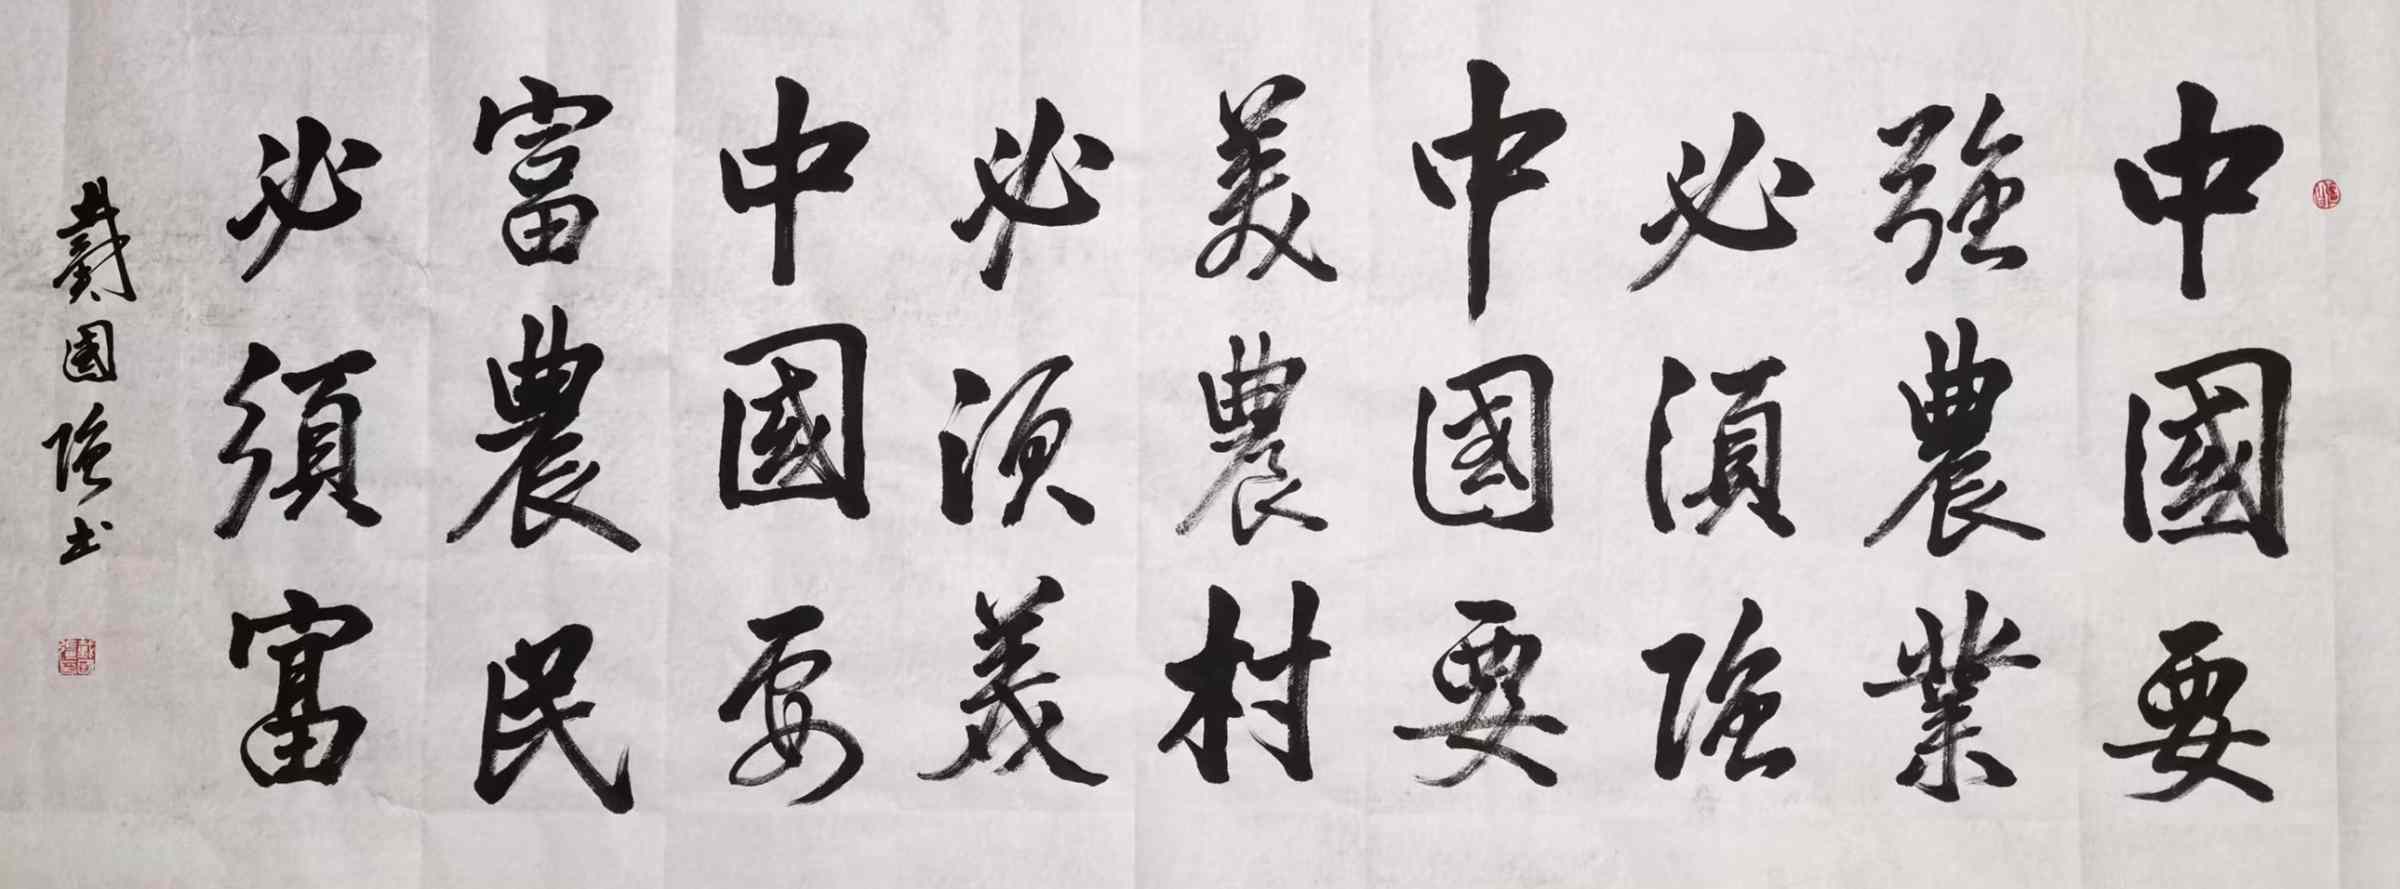 中國要
強農業
必須強
中國要
美農村
必須美
中國要
富農民
必須富
戴國強书